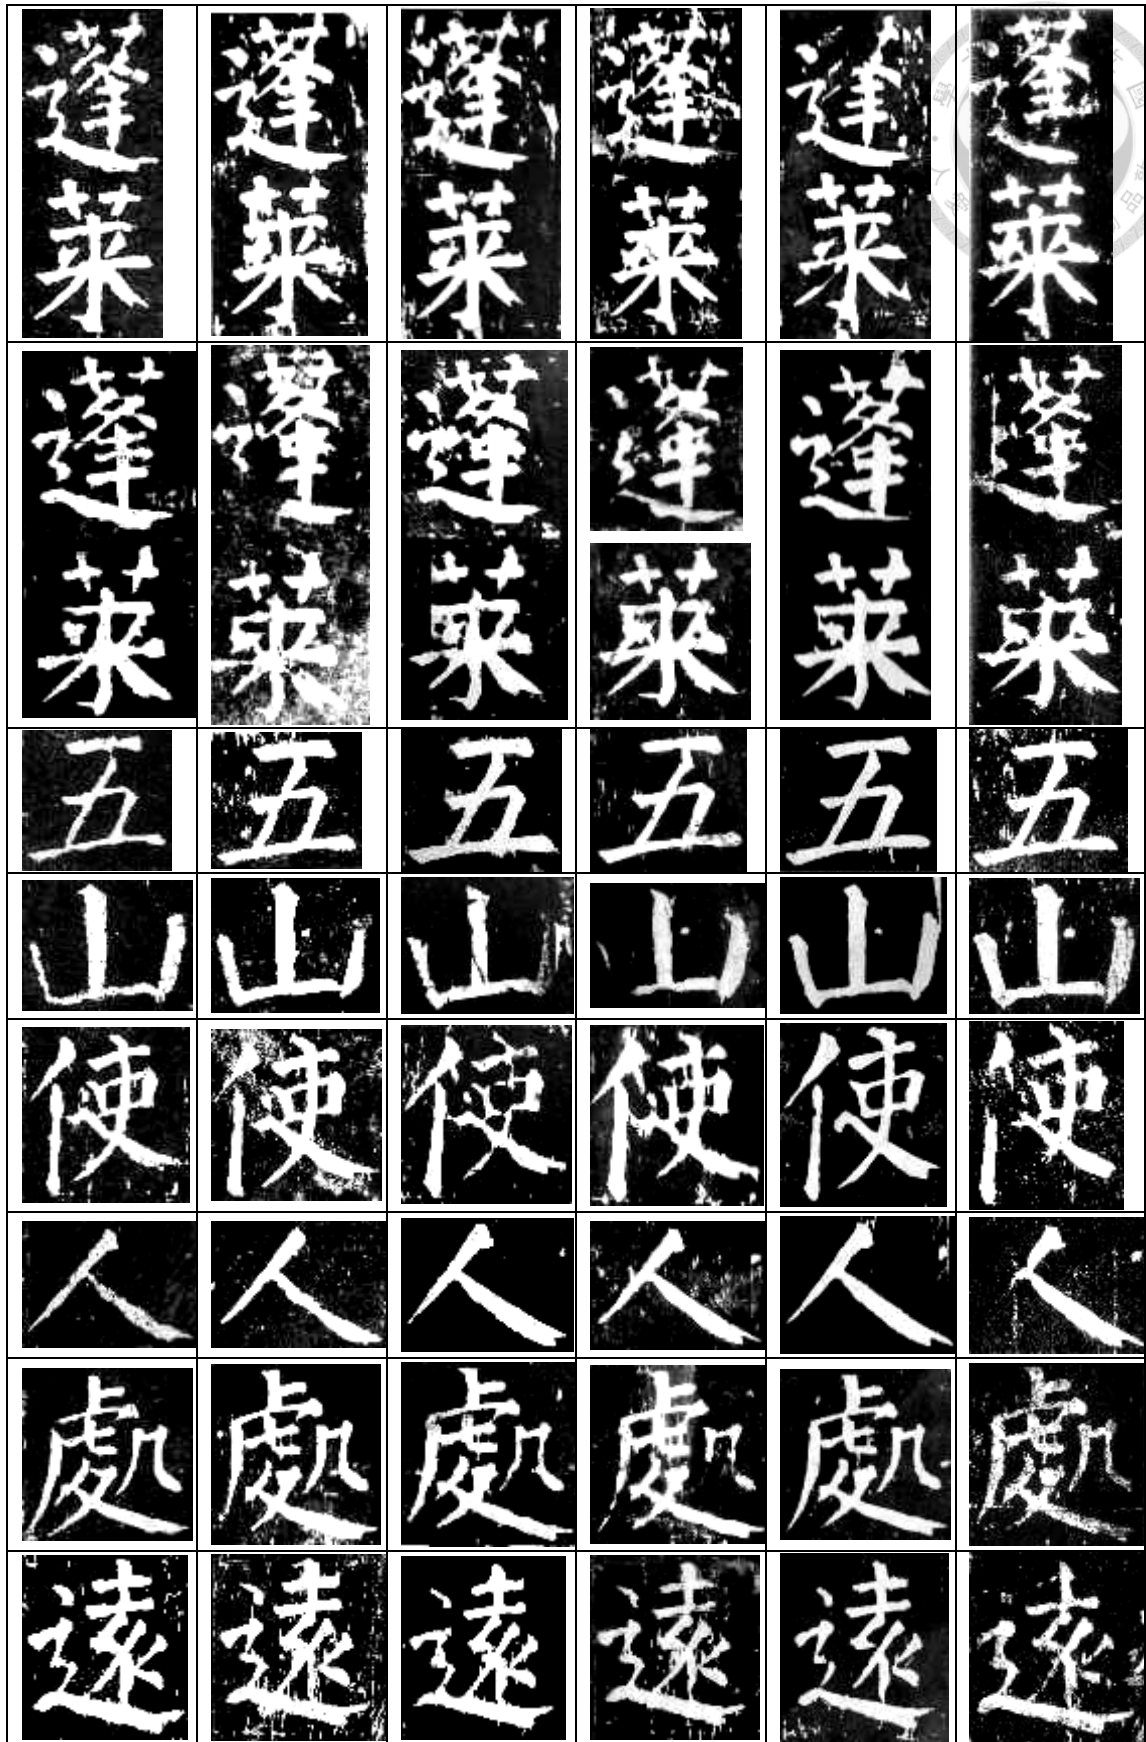 蓬萊 蓬萊 蓬萊 蓬萊 蓬萊 蓬萊
蓬萊 蓬萊 蓬萊 蓬萊 蓬萊 蓬萊
五 五 五 五 五 五
山 山 山 山 山 山
使 使 使 使 使 使
人 人 人 人 人 人
處 處 處 處 處 處
遠 遠 遠 遠 遠 遠